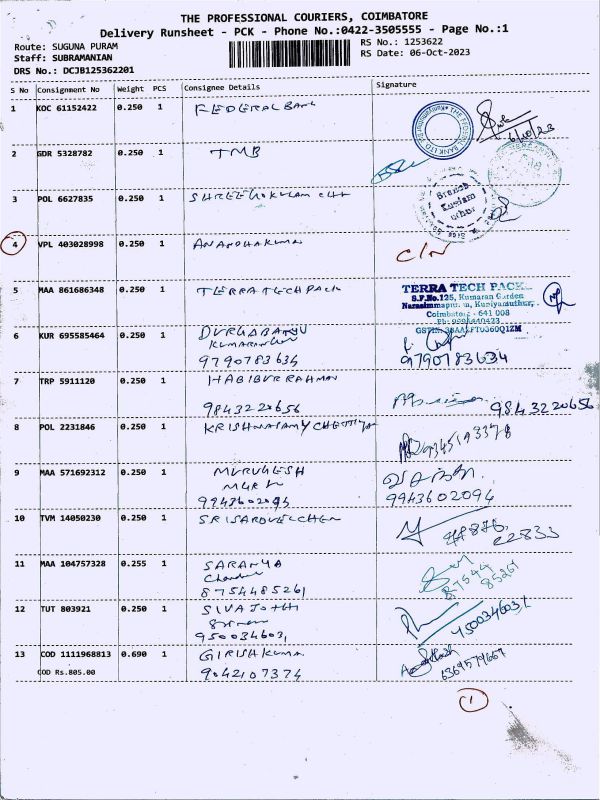 THE PROFESSIONAL COURIERS, COIMBATORE
Delivery Runsheet - PCK - Phone No.:0422-3505555 - Page No.:1
Route: SUGUNA PURAM
RS No.: 1253622
Staff: SUBRAMANIAN
RS Date: 06-Oct-2023
DRS No.: DCJB125362201
S No Consignment No Weight PCS Consignee Details Signature
1 KOC 61152422 0.250 1 FEDERAL BANK
THE FEDERAL BANK LTD
6/10/23
2 GDR 5328782 0.250 1 TMB
3 POL 6627835 0.250 1 SHREE GOKULAM CHT
4 VPL 403028998 0.250 1 ANANDHAKUMA C/N
5 MAA 861686348 0.250 1 TERRA TECH PACK
TERRA TECH PACK
S.F.No.125, Kumaran Garden
Narasimmapur, Kuniyamuthur,
Coimbatore - 641 008
6 KUR 695585464 0.250 1 DURGABANU
9790783634 9790783634
7 TRP 5911120 0.250 1 HABIBUR RAHMAN
9843220656 9843220656
8 POL 2231846 0.250 1 KRISHNASAMY CHETTIYAR
9345193378
9 MAA 571692312 0.250 1 MURUGESH
9943602094 9943602094
10 TVM 14050230 0.250 1 SRI SARDVELCHEN
22833
11 MAA 104757328 0.255 1 SARANYA
8754485261 87544
85261
12 TUT 803921 0.250 1 SIVA JOTHI
9500346031 9500346031
13 COD 1111968813 0.690 1 GIRISH KUMA
COD Rs.805.00 9042107374 6369579669
1